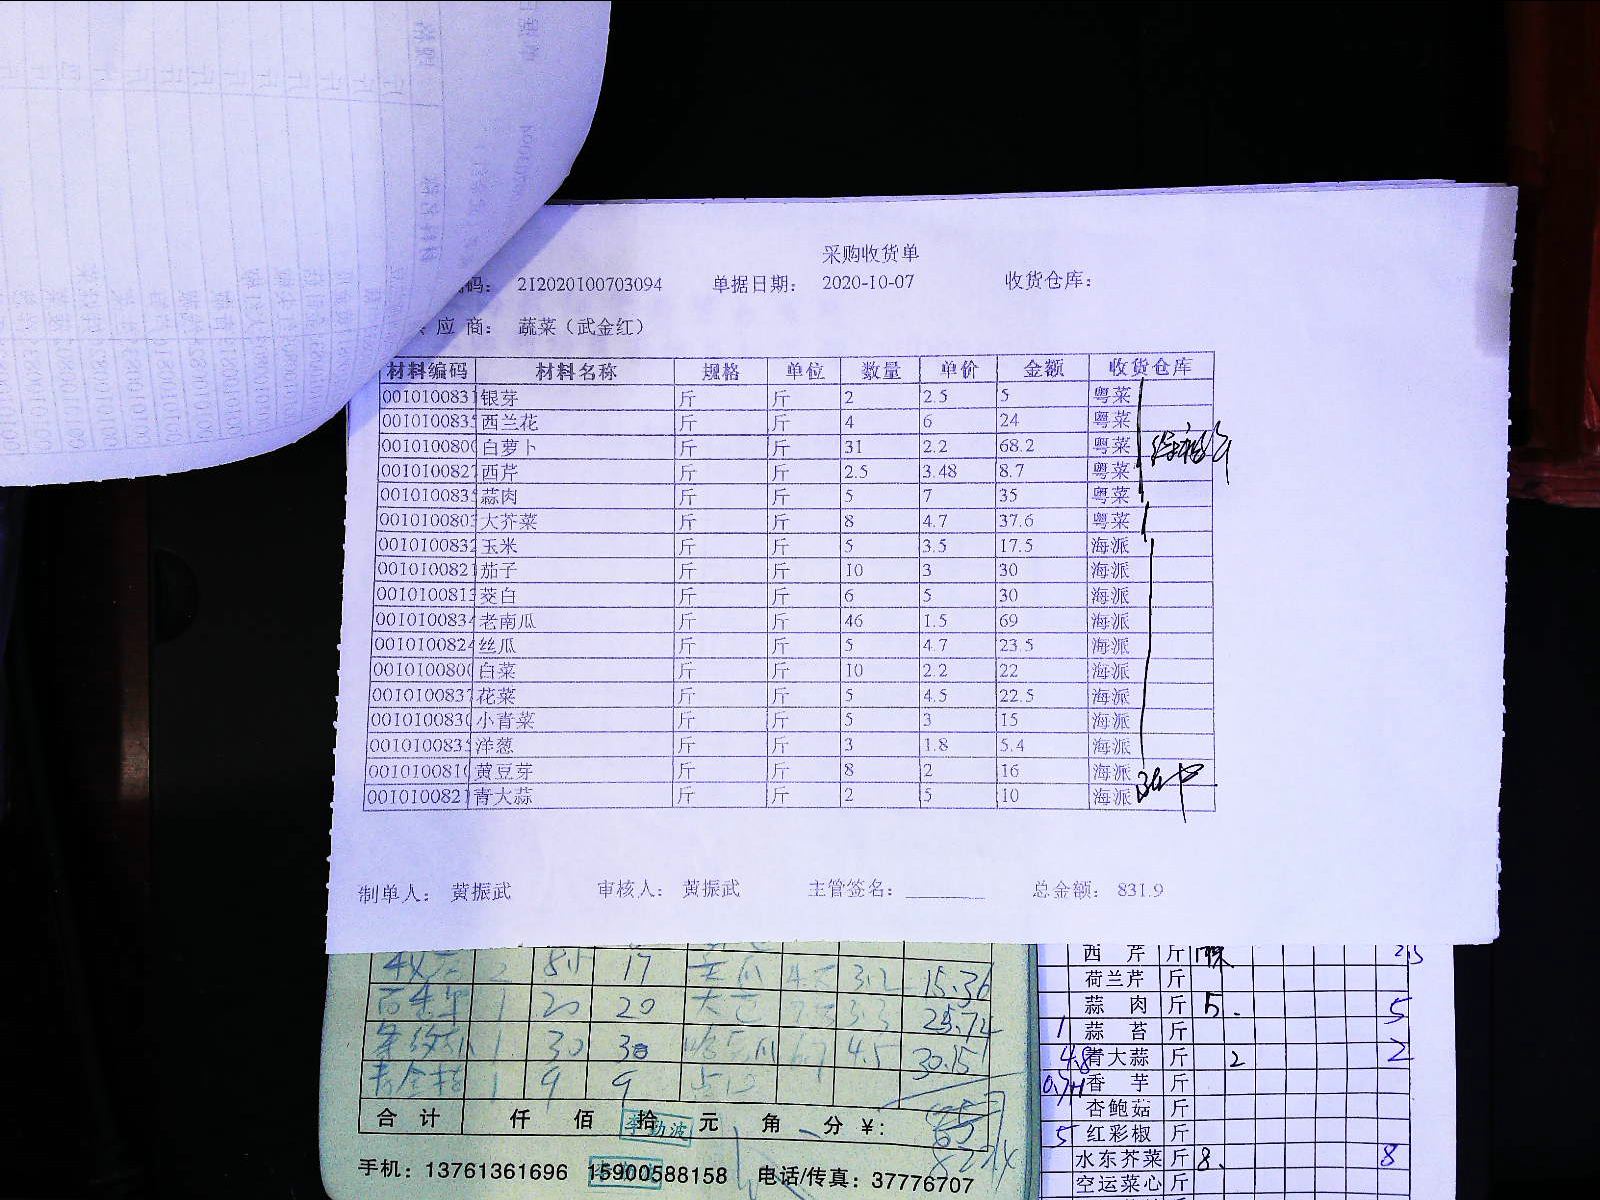 采购收货单
码： 212020100703094 单据日期： 2020-10-07 收货仓库：
应 商： 蔬菜（武金红）
材料编码 材料名称 规格 单位 数量 单价 金额 收货仓库
0010100831 银芽 斤 斤 2 2.5 5 粤菜
001010083 西兰花 斤 斤 4 6 24 粤菜
001010080 白萝卜 斤 斤 31 2.2 68.2 粤菜
001010082 西芹 斤 斤 2.5 3.48 8.7 粤菜
001010083 蒜肉 斤 斤 5 7 35 粤菜
001010080 大芥菜 斤 斤 8 4.7 37.6 粤菜
0010100832 玉米 斤 斤 5 3.5 17.5 海派
0010100821 茄子 斤 斤 10 3 30 海派
001010081 茭白 斤 斤 6 5 30 海派
001010083 老南瓜 斤 斤 46 1.5 69 海派
001010082 丝瓜 斤 斤 5 4.7 23.5 海派
001010080 白菜 斤 斤 10 2.2 22 海派
001010083 花菜 斤 斤 5 4.5 22.5 海派
001010083 小青菜 斤 斤 5 3 15 海派
001010083 洋葱 斤 斤 3 1.8 5.4 海派
001010081 黄豆芽 斤 斤 8 2 16 海派
001010082 青大蒜 斤 斤 2 5 10 海派
制单人： 黄振武 审核人： 黄振武 主管签名： 总金额： 831.9
2 8.5 17 3.2 15.36
1 20 20 3.3 25.74
1 30 30 哈密瓜 6.7 4.5 30.15
1 9 9
合 计 仟 佰 拾 元 角 分 ￥：
手机：13761361696 15900588158 电话/传真：37776707
西 芹 斤 2.5
荷兰芹 斤
蒜 肉 斤 5. 5
蒜 苔 斤
青大蒜 斤 2 2
香 芋 斤
杏鲍菇 斤
5 红彩椒 斤
水东芥菜 斤 8. 8
空运菜心 斤